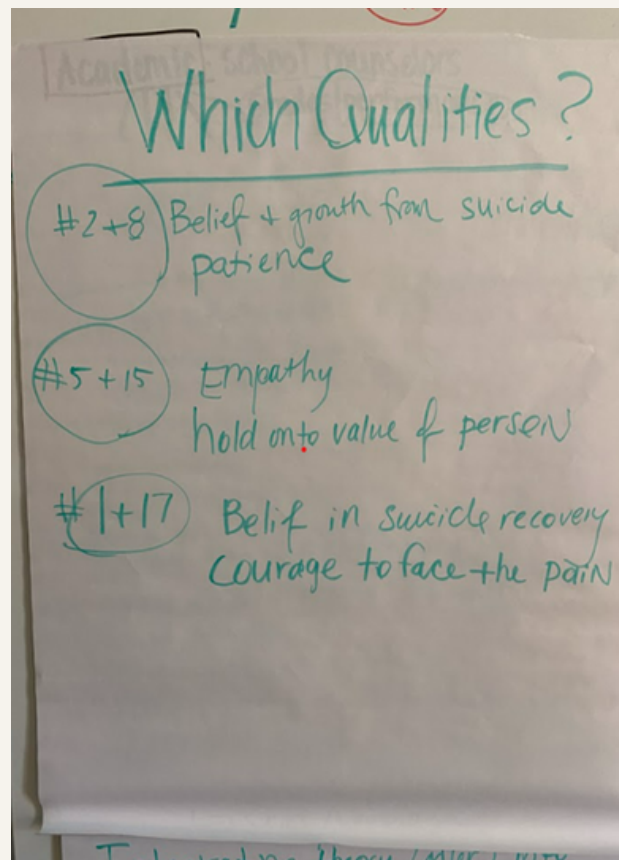 Academic school counselors
Which Qualities?
#2+8 Belief + growth from suicide
patience
#5 + 15 Empathy
hold onto value of person
#1+17 Belif in suicide recovery
courage to face the pain